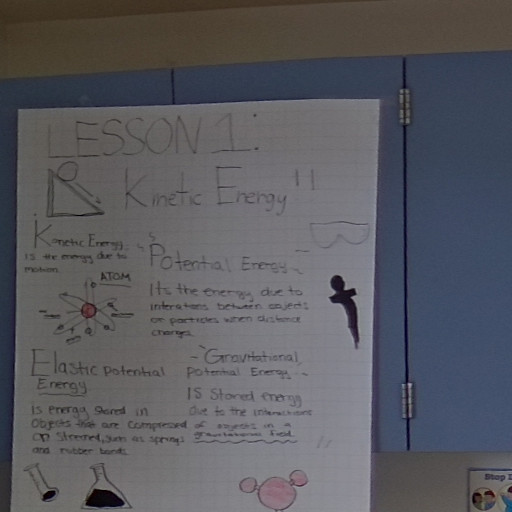 LESSON 1:
Kinetic Energy"
Kenetic Energy:
Is the energy due to
motion.
ATOM
Potential Energy
Its the energy due to
interations between objects
or particles when distance
changes.
Elastic potential
Energy
Is energy stored in
objects that are compressed
or streched, such as springs
and rubber bands.
Gravitational
Potential Energy
Is Stored energy
due to the interactions
of objects in a
gravitational field.
Stop